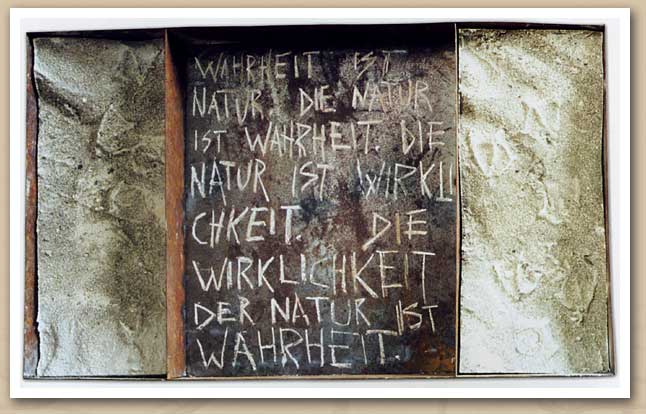 WAHRHEIT IST
NATUR. DIE NATUR
IST WAHRHEIT. DIE
NATUR IST WIRKLI
CHKEIT. DIE
WIRKLICHKEIT
DER NATUR IST
WAHRHEIT.